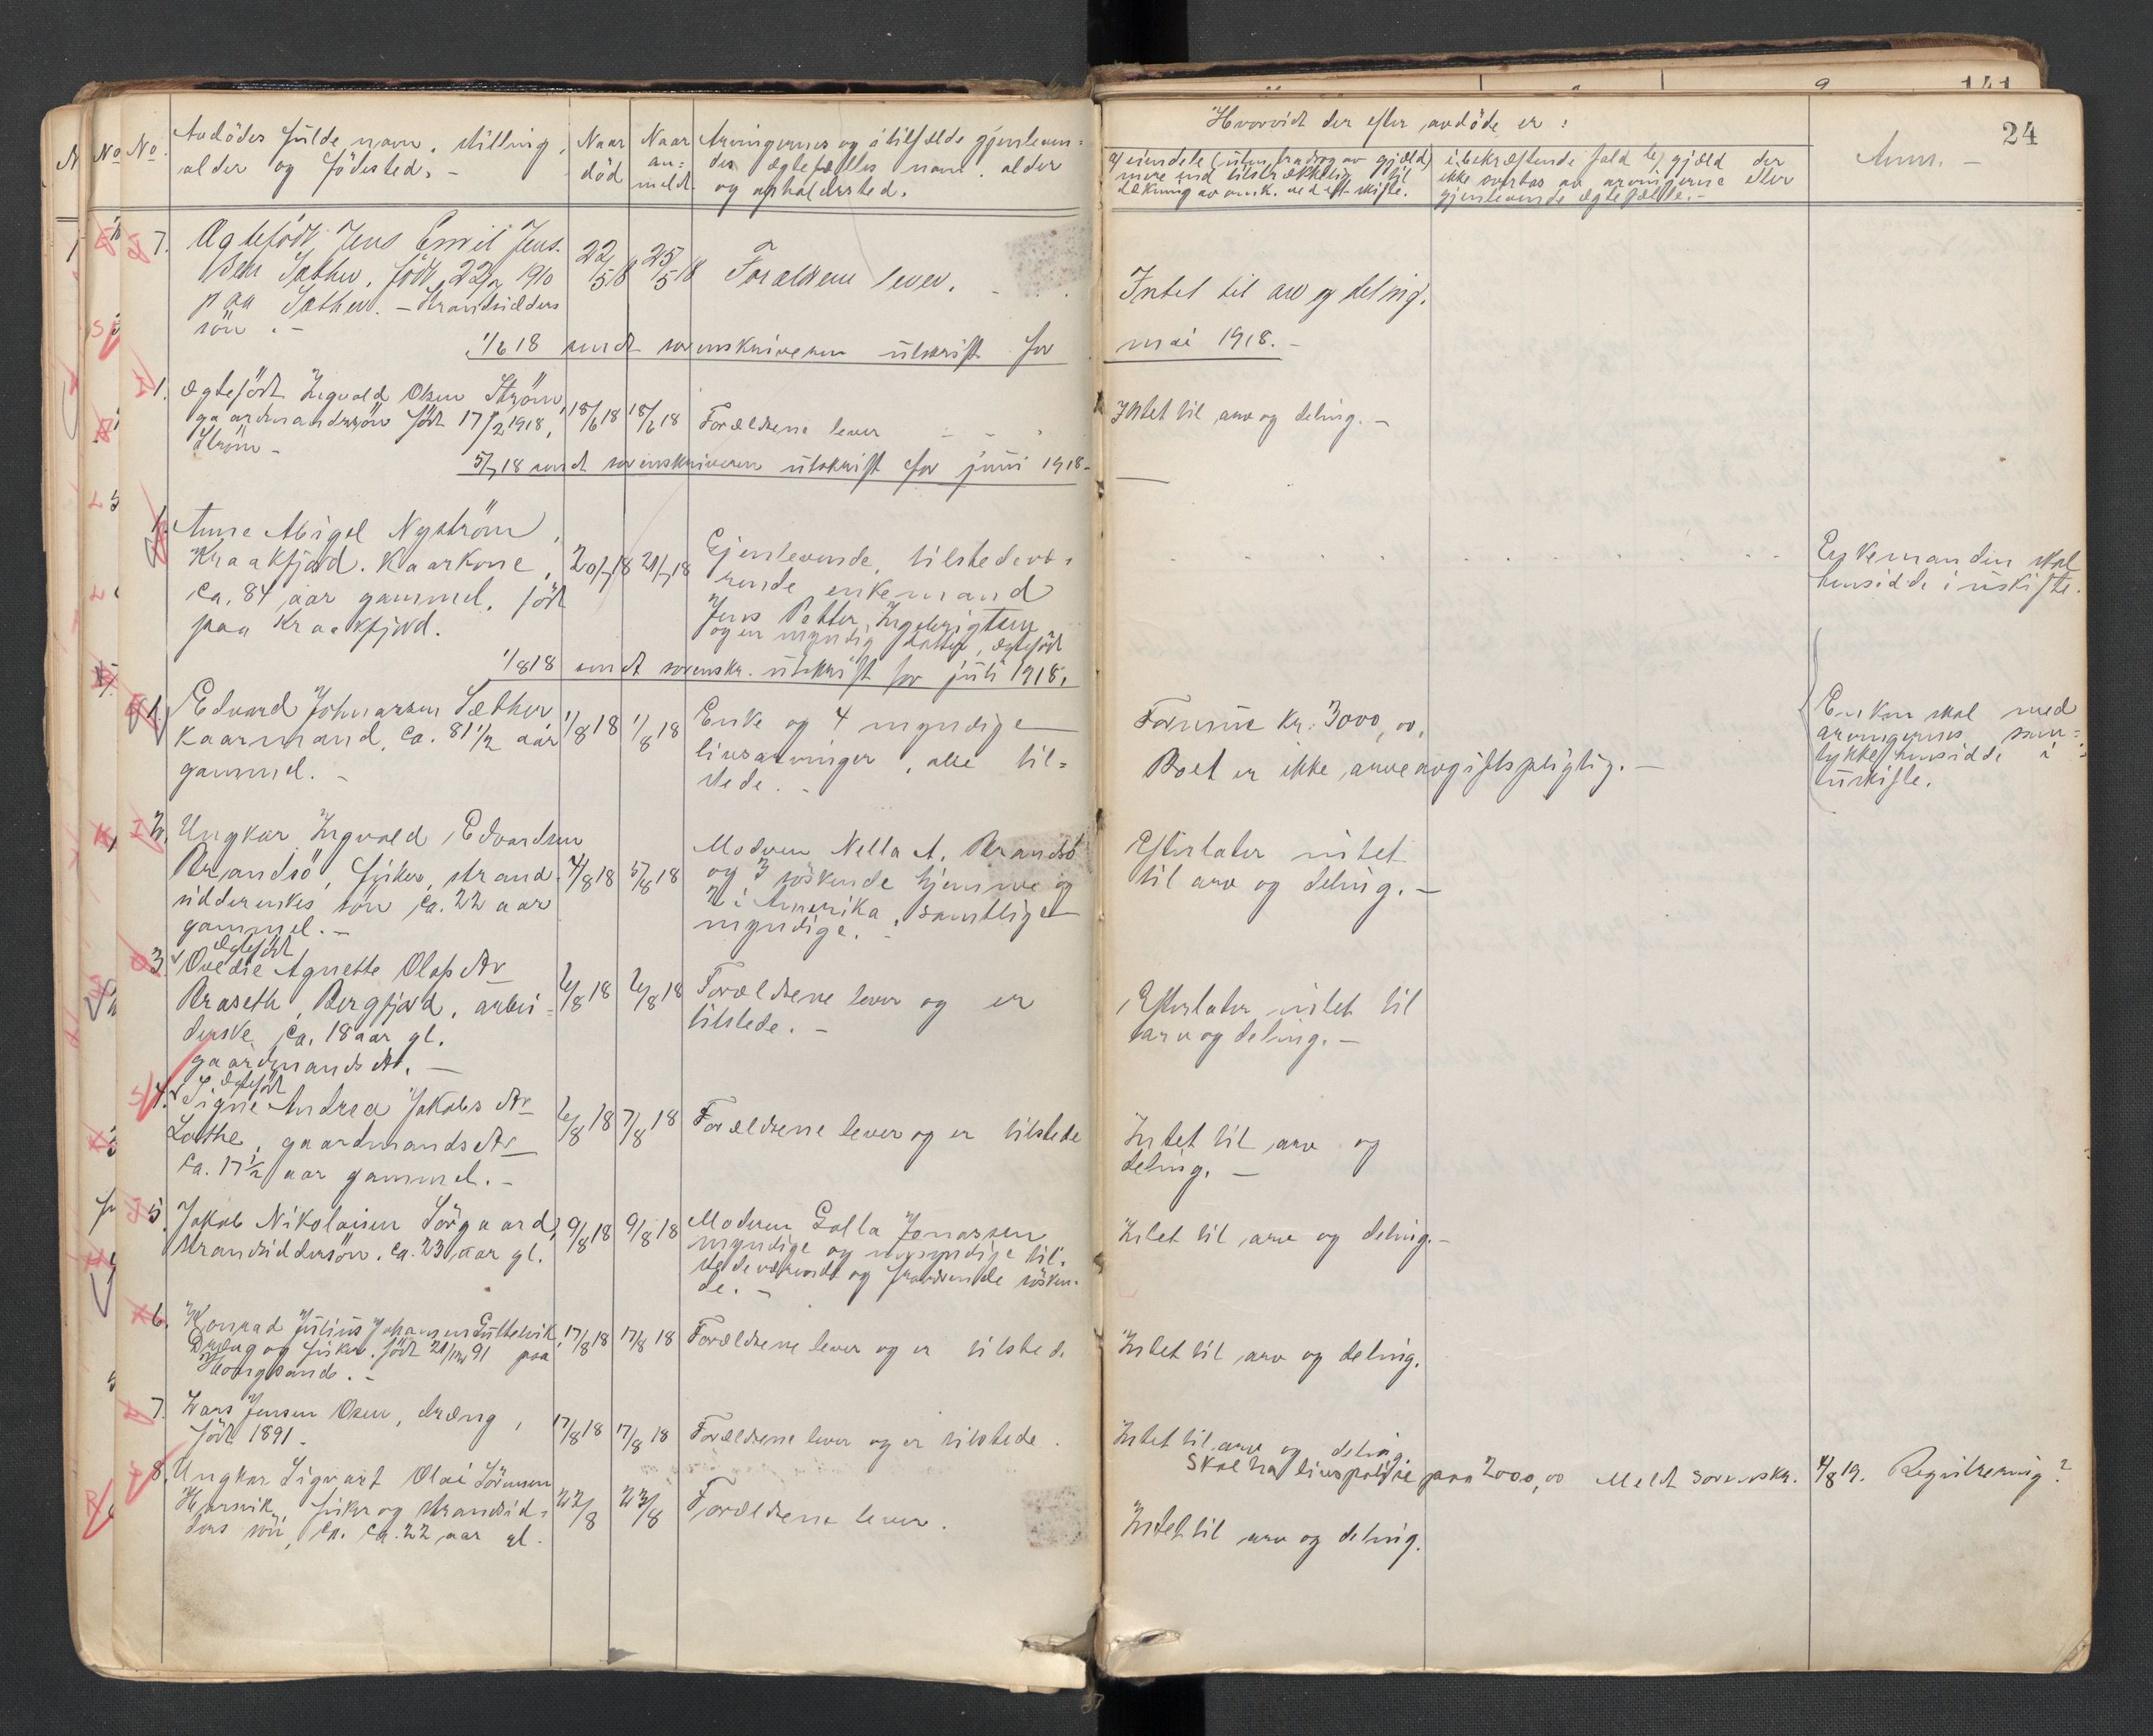 No.
Avdödes fulde navn, stilling,
alder og födested. -
Naar
död
Naar
an=
meldt
Arvingernes og i tilfælde gjenleven=
des ægtefælles navn, alder
og opholdssted.
Hvorvidt der efter avdöde er:
a) eiendele (uten fradrag av gjæld)
mere end tilstrækkelig til
dækning av omk. ved et skifte.
i bekræftende fald b) gjæld der
ikke overtas av arvingerne eller
gjenlevende ægtefælle. -
Anm. -
24
7.
Ægtefödt Jens Emil Jens.
sen Sæther, födt 22/2 1910
paa Sæther. - Strandsidders
sön. -
22/5 18
25/5 18
Forældrene lever.
Intet til arv og deling.
1/6 18 sendt sorenskriveren utskrift for
mai 1918. -
1.
Ægtefödt Ingvald Olsen Ström,
gaardmandssön födt 17/2 1918,
Ström -
18/6 18
18/6 18
Forældrene lever
Intet til arv og deling. -
5/7 18 sendt sorenskriveren utskrift for juni 1918 -
1.
Anne Abigel Nyström,
Kraakfjord. Kaarkone,
ca. 84 aar gammel, födt
paa Kraakfjord.
20/7 18
21/7 18
Gjenlevende, tilstedevæ=
rende enkemand
Jens Petter Ingebrigtsen
og en myndig datter, ægtefödt
Enkemanden skal
hensidde i uskifte.
1/8 18 sendt sorenskr. utskrift for juli 1918.
1.
Edvard Johnarsen Sæther
Kaarmand, ca. 81 1/2 aar
gammel. -
1/8 18
1/8 18
Enke og 4 myndige
livsarvinger, alle til=
stede. -
Formue kr. 3000,00.
Boet er ikke arveavgiftspligtig. -
Enken skal med
arvingernes sam=
tykke hensidde i
uskifte.
2.
Ungkar Ingvald Edvardsen
Brandsö, fisker, strand
sidderenkes sön ca. 22 aar
gammel. -
4/8 18
5/8 18
Moderen Nella A. Brandsö
og 3 söskende hjemme og
2 i Amerika, samtlige
myndige. -
Efterlater intet
til arv og deling. -
3.
Ægtefödt
Ovedie Agnette Olafsdtr
Braseth, Bergfjord, arbei=
derske, ca. 18 aar gl.
gaardmandsdtr. -
6/8 18
6/8 18
Forældrene lever og er
tilstede. -
Efterlater intet til
arv og deling. -
4.
Ægtefödt
Signe Andrea Jakobsdtr
Lothe, gaardmandsdtr
ca. 17 1/2 aar gammel. -
6/8 18
7/8 18
Forældrene lever og er tilstede
Intet til arv og
deling. -
5.
Jakob Nikolaisen Sörgaard,
strandsiddersön. ca. 23 aar gl.
9/8 18
9/8 18
Moderen Golla Jonassen
myndige og umyndige til=
stedeværende og fraværende sösken=
de. -
Intet til arv og deling. -
6.
Konrad Julius Johansen
Dreng og fisker. födt 21/12 91 paa
17/8 18
17/8 18
Forældrene lever og er tilstede
Intet til arv og deling.
7.
Lars Jensen Osen, dræng,
födt 1891 -
17/8 18
17/8 18
Forældrene lever og er tilstede.
Intet til arv og deling
Skal ha livspolise paa 2000,00 Meldt sorenskr. 4/8 19. Registrering?
8.
Ungkar Sigvart Olai Sörensen
Harsvik, fisker og strandsid=
ders sön, ca. ca. 22 aar gl.
22/8
23/8
Forældrene lever.
Intet til arv og deling.